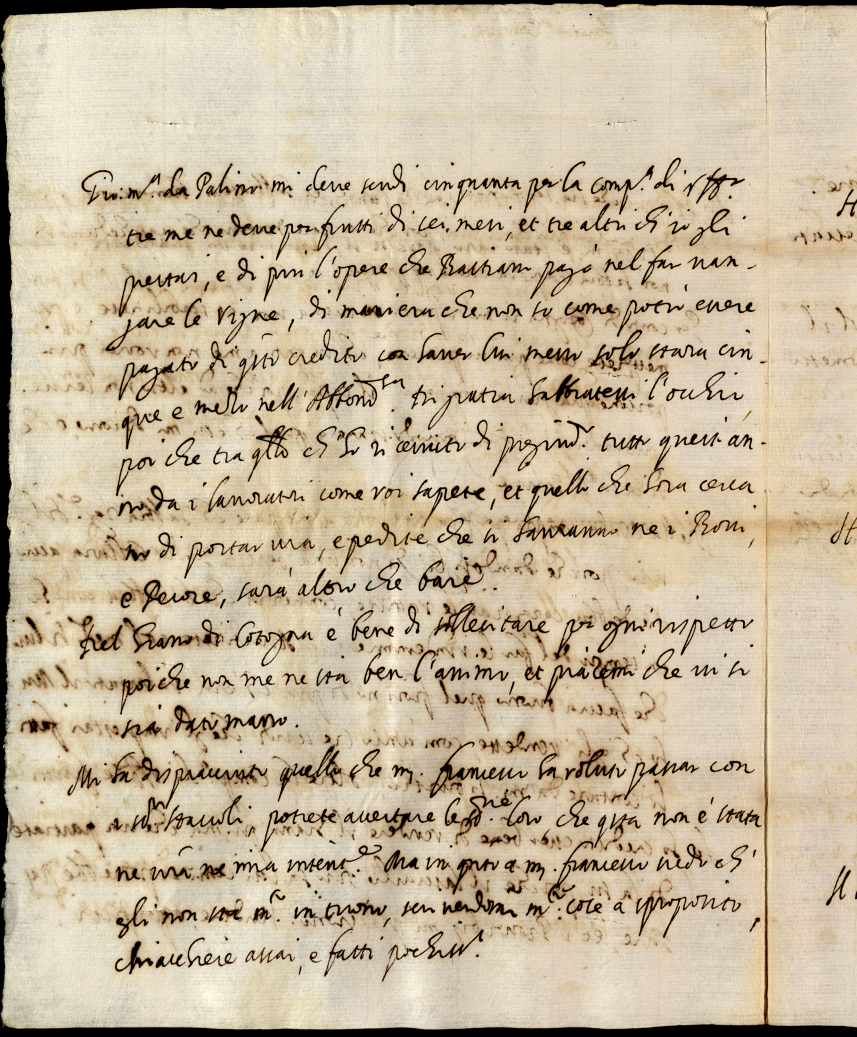 Gio: m.ª da Palino mi deve scudi cinquanta per la comp.ª di
tre me ne deve per frutti di sei mesi, et tre altri ch'io gli
prestai, e di più l'opere che Bastiano pagò nel far van-
gare le vigne, di maniera che non so come potrò essere
pagato di q̃sto credito con haver lui messo solo stara cin-
que e mezo nell' Abbond.za di gratia habbiatevi l'ochio,
poi che tra q̃llo ch' ho ricevuto di pregiud.º tutto quest'an-
no da i lavoratori come voi sapete, et quello che hora cerca
no di portar via, e perdite che si haveranno ne i Bovi,
e Pecore, sarà altro che baie.
Del Grano di Cotogna è bene di sollecitare per ogni rispetto
poiche non me ne sta ben l'animo, et piacemi che vi si
sia dato mano.
Mi ha dispiaciuto quello che m. francesco ha voluto passar con
i ss.ri Staccoli potrete accertare le ss.rie loro, che q̃sta non è stata
ne sarà ne mia intent.e Ma in q̃sto a m. francesco vedo ch'
egli non sta m.º in tuono, scrivendomi m.te cose a sproposito,
chiachiere assai, e fatti pochiss.i